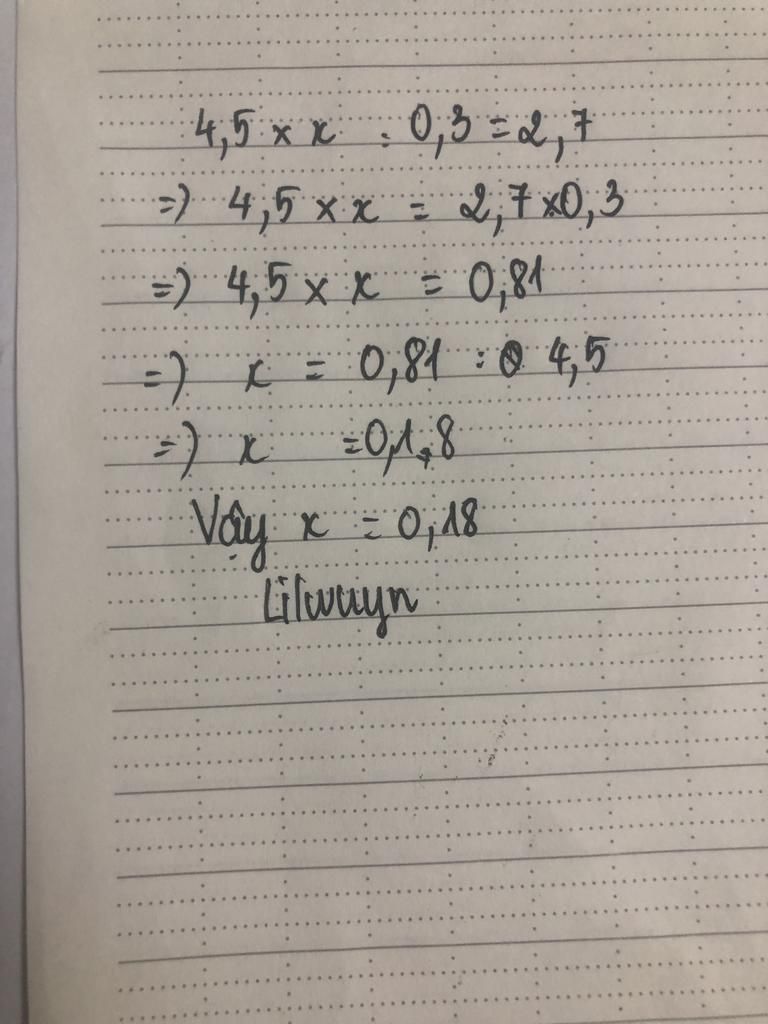 4,5 × x : 0,3 = 2,7
=) 4,5 × x = 2,7 × 0,3
=) 4,5 × x = 0,81
=) x = 0,81 : 4,5
=) x = 0,18
Vậy x = 0,18
Lilwuyn